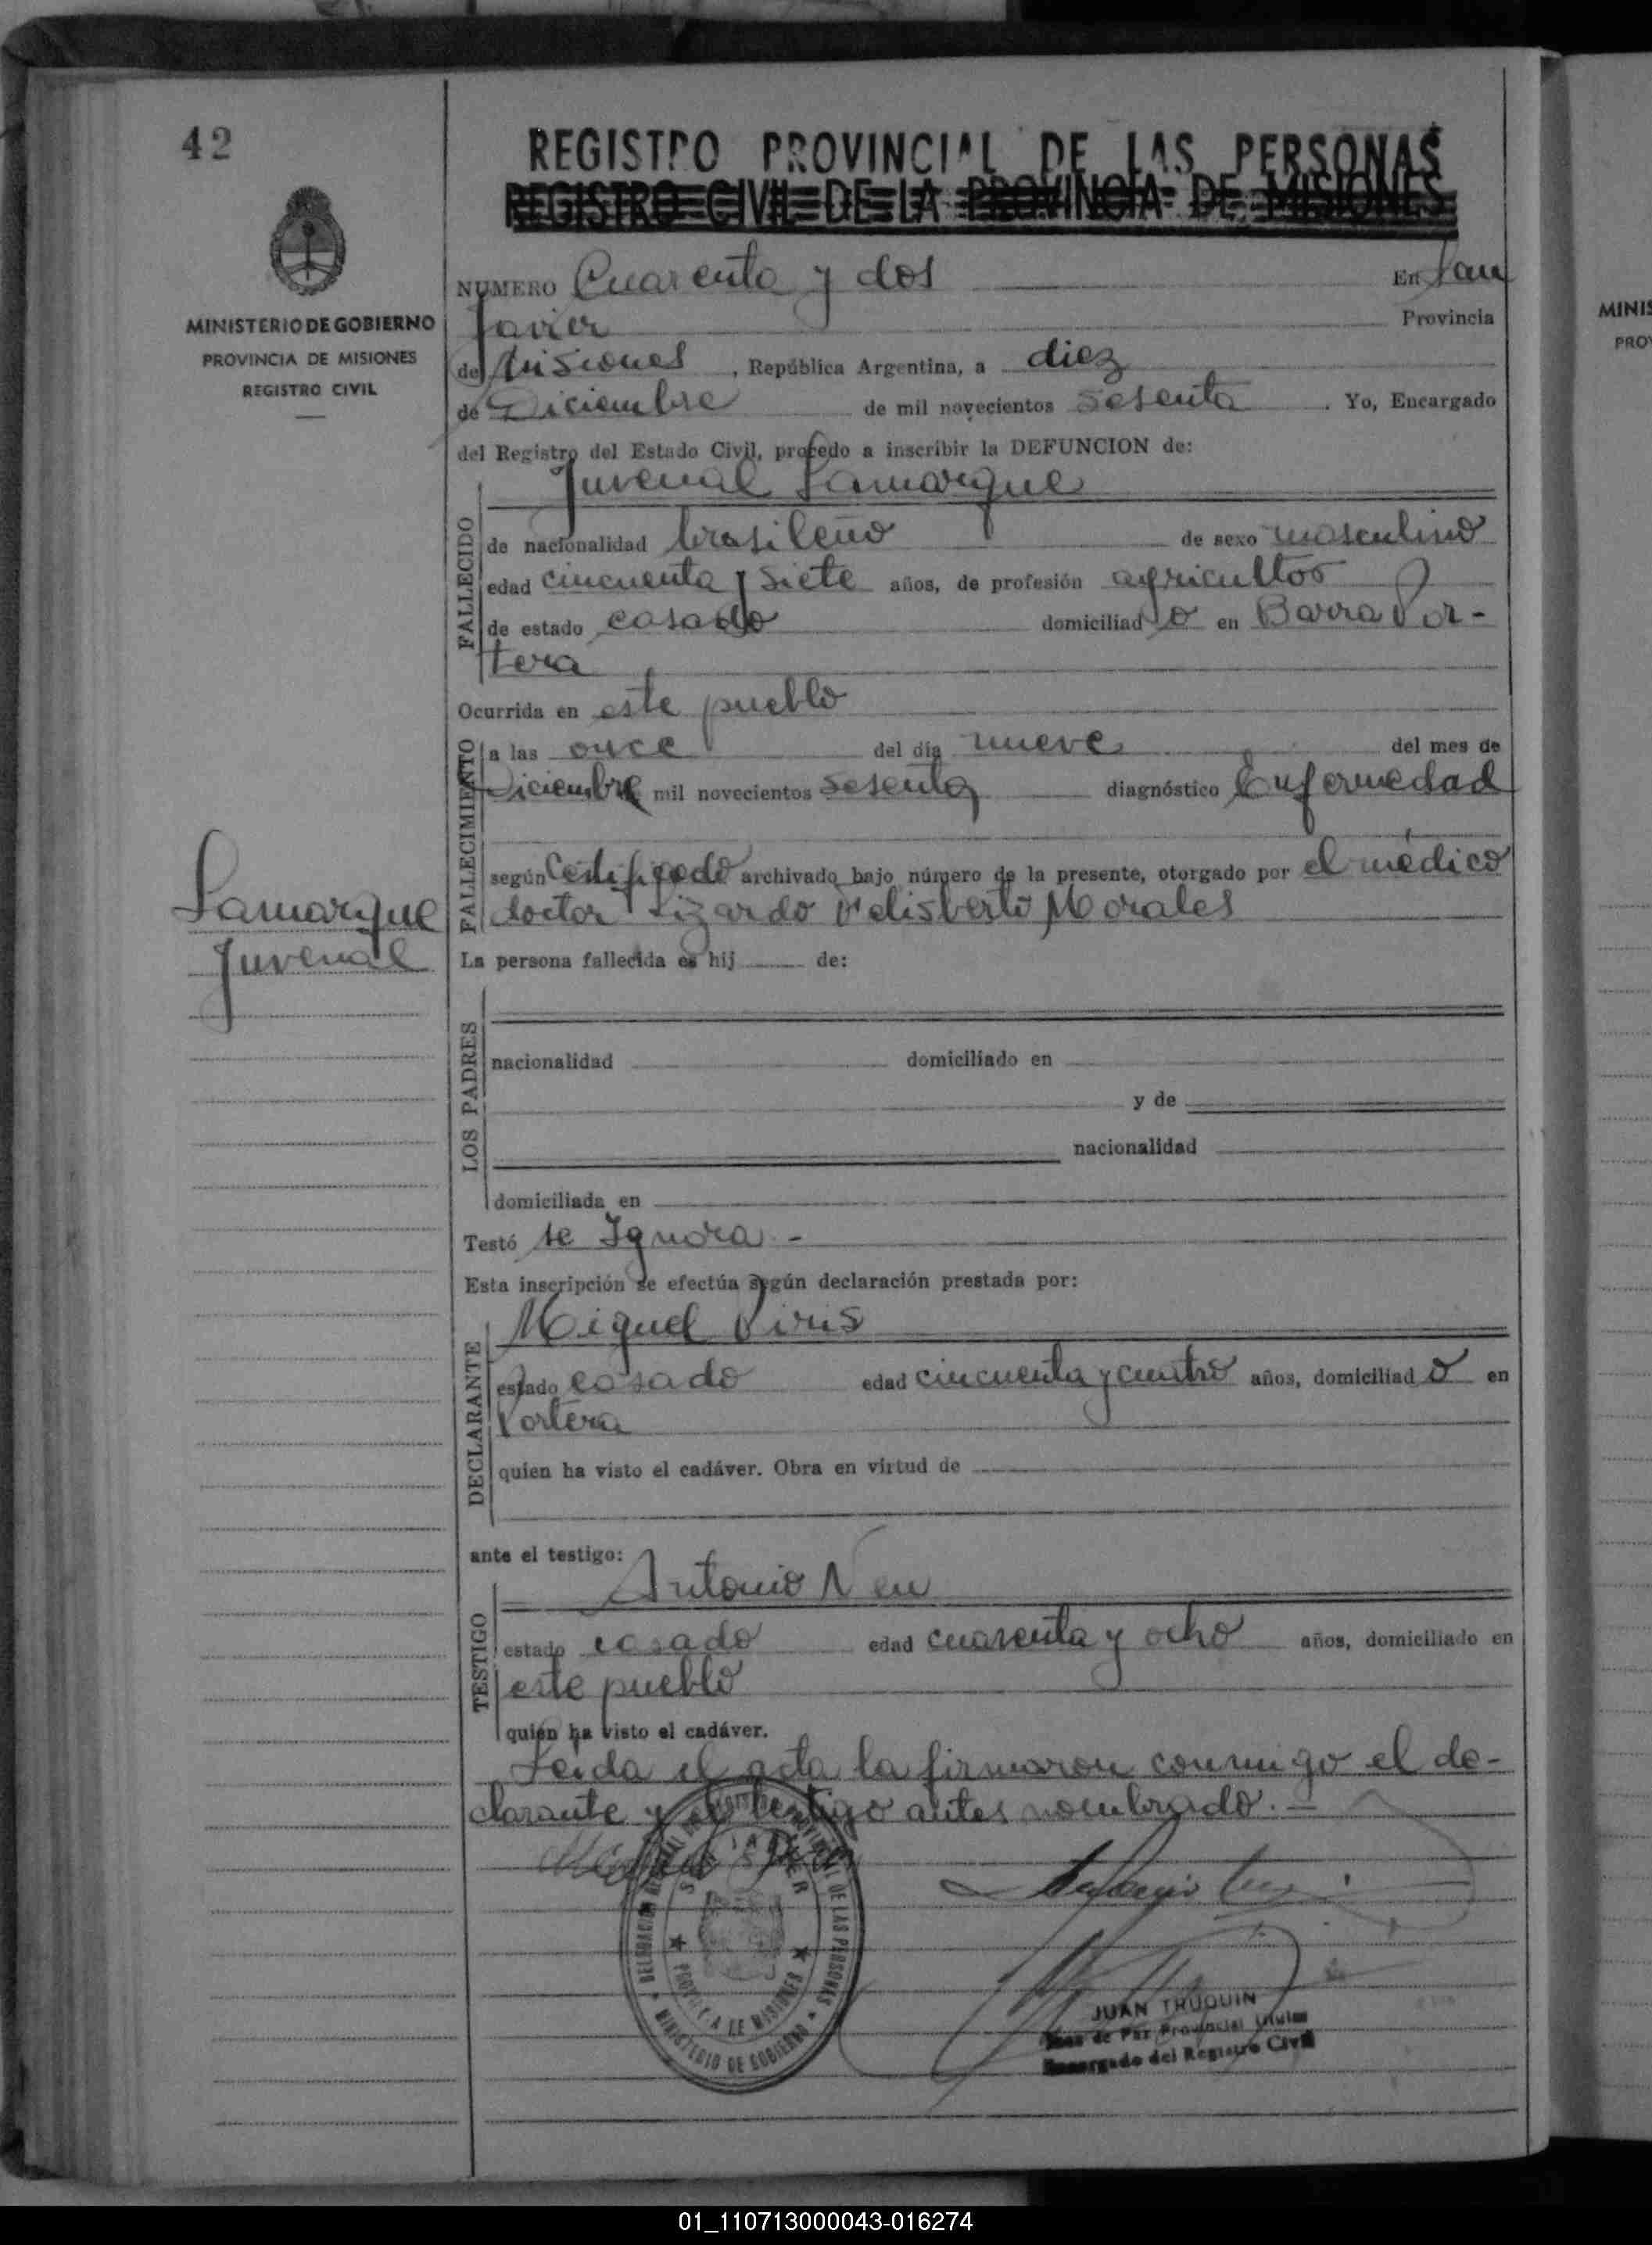 42
MINISTERIO DE GOBIERNO
PROVINCIA DE MISIONES
REGISTRO CIVIL
REGISTRO PROVINCIAL DE LAS PERSONAS
REGISTRO CIVIL DE LA PROVINCIA DE MISIONES
NUMERO Cuarenta y dos En San
Javier Provincia
de Misiones, República Argentina, a diez
de Diciembre de mil novecientos sesenta. Yo, Encargado
del Registro del Estado Civil, procedo a inscribir la DEFUNCION de:
Juvenal Lamarque
FALLECIDO
de nacionalidad brasileño de sexo masculino
edad cincuenta y siete años, de profesión agricultor
de estado casado domiciliado en Barra Por-
tera
Ocurrida en este pueblo
FALLECIMIENTO
a las once del día nueve del mes de
Diciembre mil novecientos sesenta diagnóstico Enfermedad
según Certificado archivado bajo número de la presente, otorgado por el médico
doctor Lizardo Felisberto Morales
Lamarque
Juvenal
La persona fallecida es hij de:
LOS PADRES
nacionalidad domiciliado en
y de
nacionalidad
domiciliada en
Testó se Ignora.-
Esta inscripción se efectúa según declaración prestada por:
Miguel Piris
DECLARANTE
estado casado edad cincuenta y cuatro años, domiciliado en
Portera
quien ha visto el cadáver. Obra en virtud de
ante el testigo:
Antonio Neu
TESTIGO
estado casado edad cuarenta y ocho años, domiciliado en
este pueblo
quien ha visto el cadáver.
Leida el acta la firmaron conmigo el de-
clarante y el testigo antes nombrado.-
SAN JAVIER
DE LAS PERSONAS
PROVINCIA DE MISIONES
MINISTERIO DE GOBIERNO
JUAN TRUQUIN
Juez de Paz Provincial Titular
Encargado del Registro Civil
MINIS
PRO
01_110713000043-016274